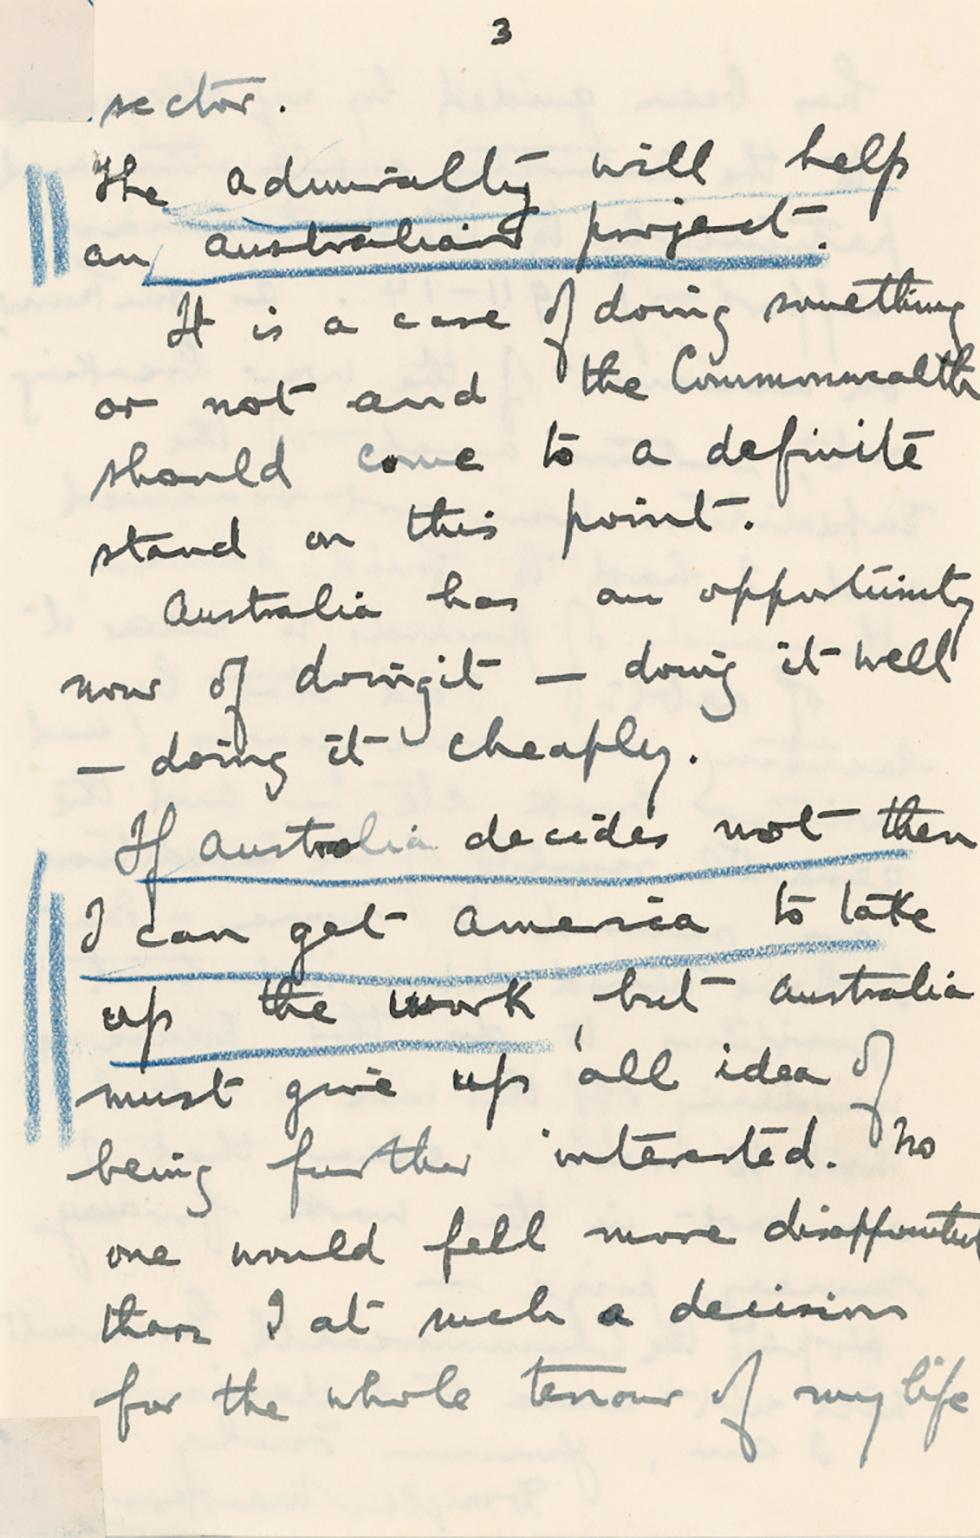 3
sector.
The Admiralty will help
an Australian project.
It is a case of doing something
or not and the Commonwealth
should come to a definite
stand on this point.
Australia has an opportunity
now of doing it — doing it well
— doing it cheaply.
If Australia decides not then
I can get America to take
up the work, but Australia
must give up all idea of
being further interested. No
one would fell more disappointed
than I at such a decision
for the whole tenour of my life